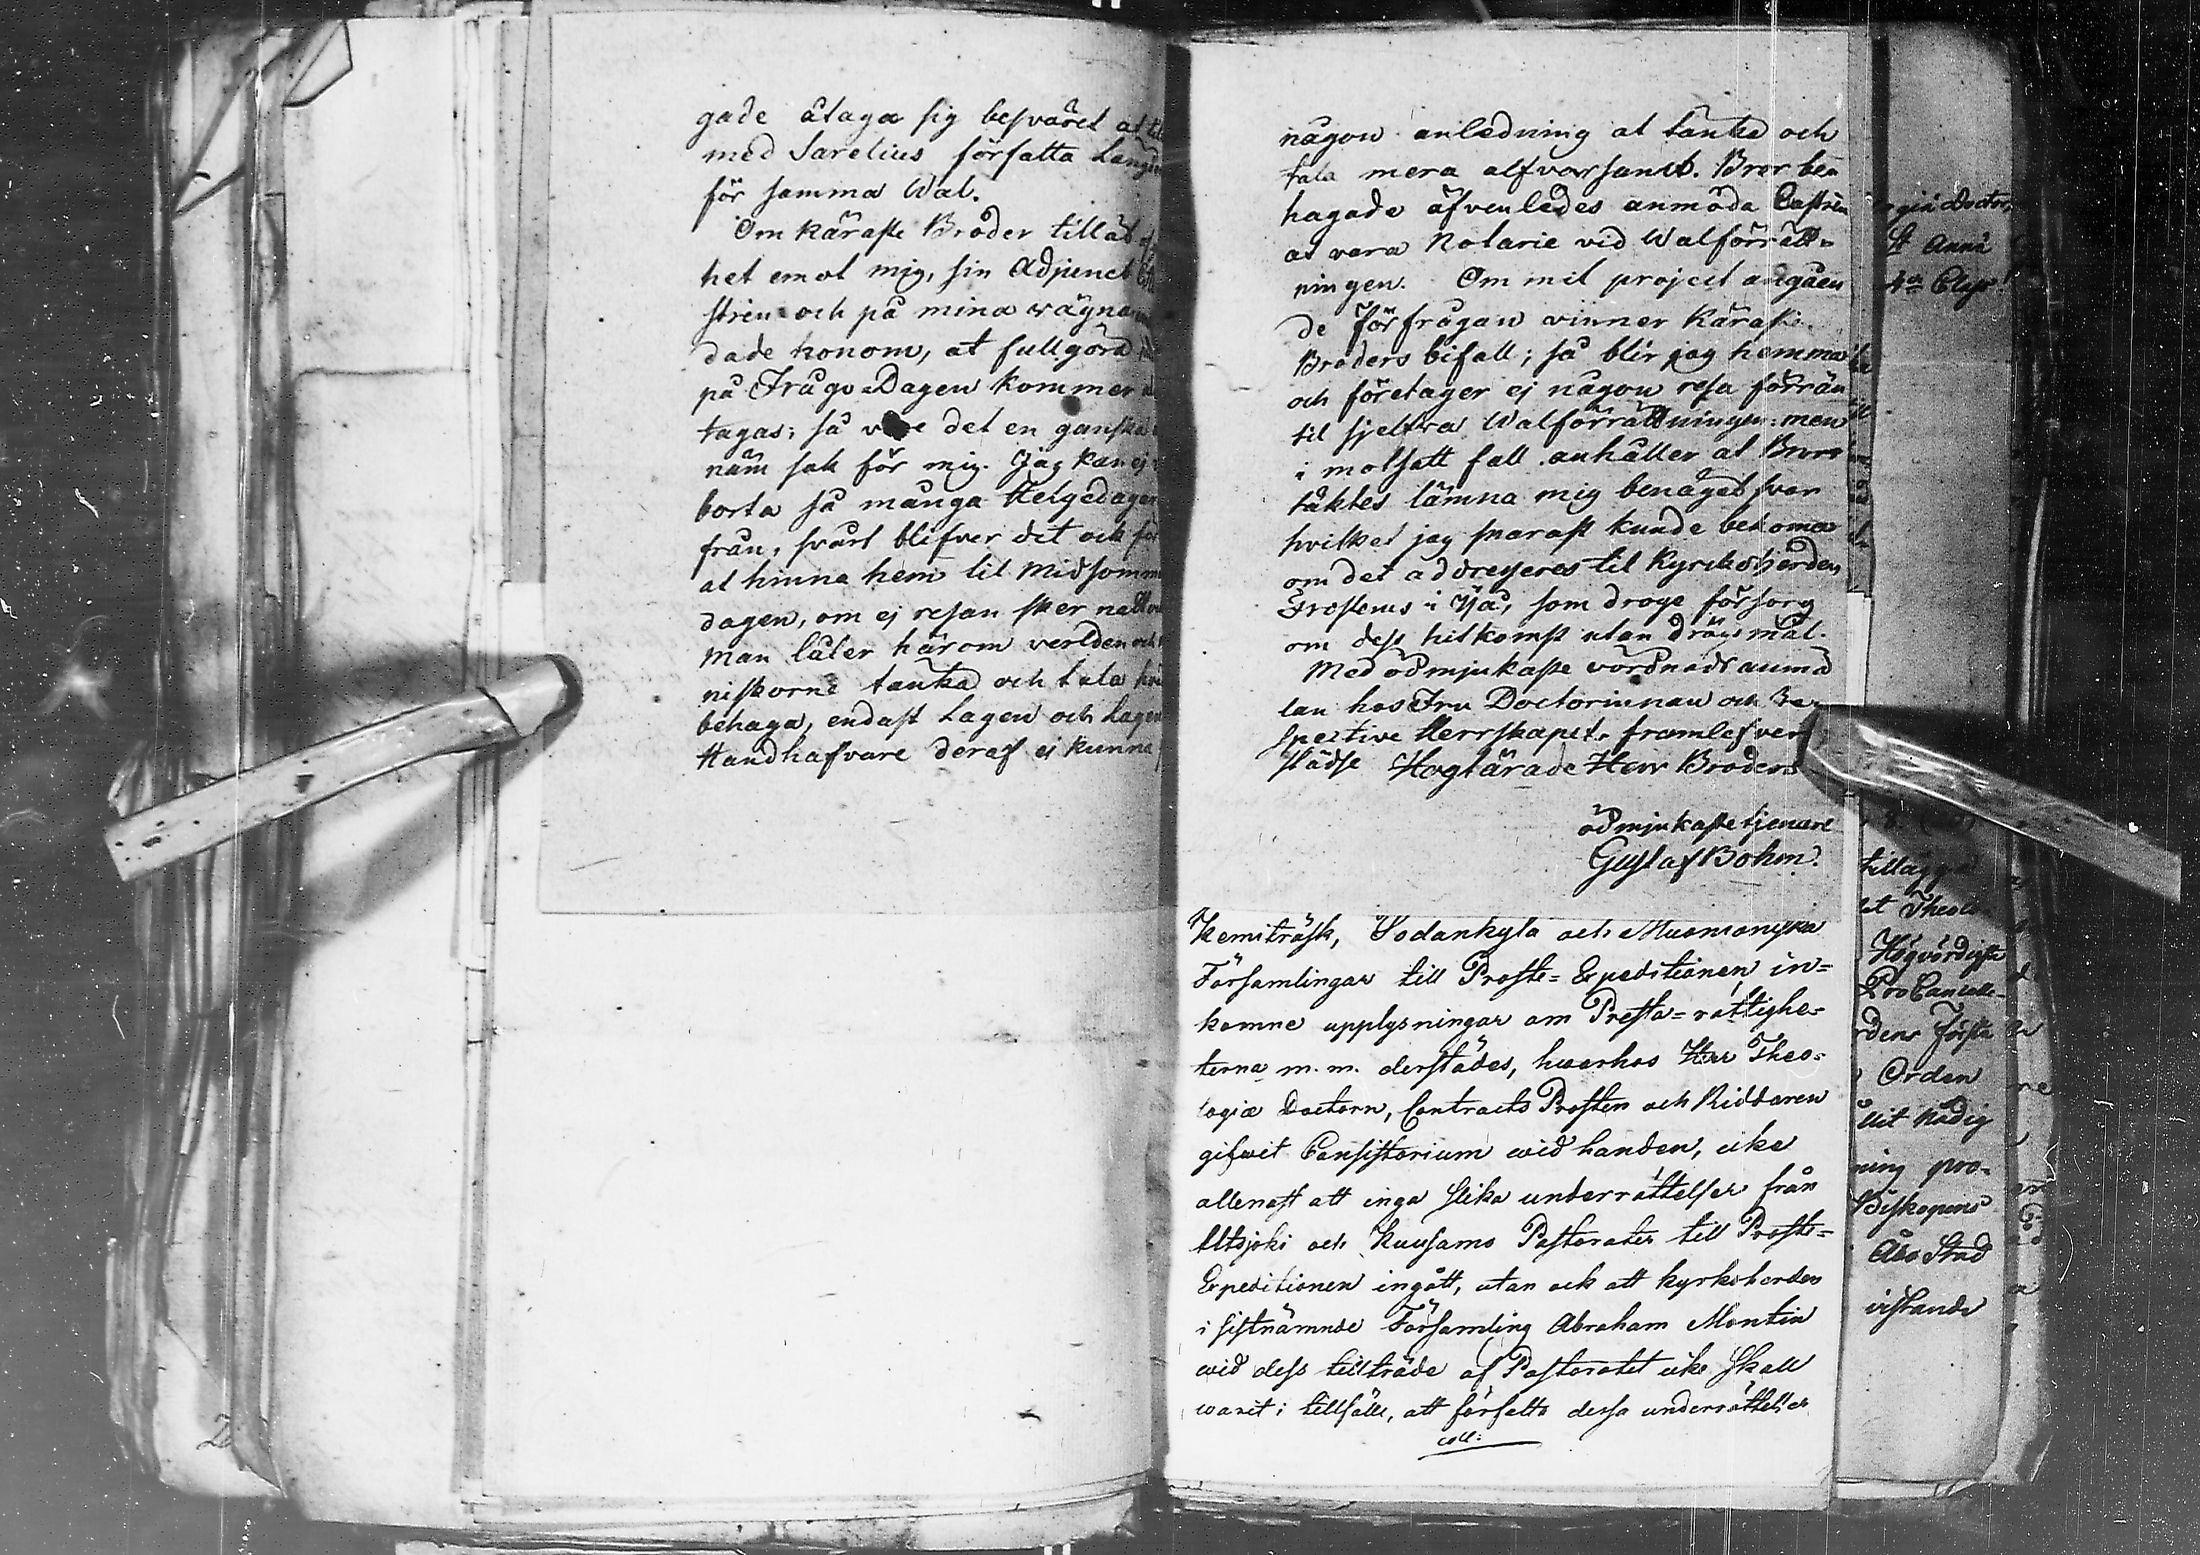 gade åtaga sig besväret at
med Sarelius författa Läng
för samma Wal.
Om Käraste Broder tillät
het emot mig, sin Adjunct
strén och på mina vägna
dade honom, at fullgöra
på Frågo-Dagen kommer
tagas; så vore det en ganska
näm sak för mig. Jag kan ej
borta så många Helgedagar
från, svårt blifver det ock för
at hinna hem til Midsomm
dagen, om ej resan sker natt
Man låter härom verlden och
niskorne tänka och tala
behaga, endast Lagen och Lagen
Handhafvare deraf ej kunna
någon anledning at tänka och
tala mera alfvarsamt. Bror be-
hagade äfvenledes anmoda Castrén
at vara Notarie vid Walförrätt-
ningen. Om mit project angåen
de Förfrågan vinner Käraste
Broders bifall; så blir jag hemma
och företager ej någon resa förrän
til sjelfva Walförrättningen: men
i motsatt fall anhåller at Bror
täktes lämna mig benäget svar
hvilket jag snarast kunde bekoma
om det addresseres til Kyrckoherden
Frosterus i Ijå, som droge försorg
om dess hitkomst utan dröjsmål.
Med ödmjukaste vördnads anmä
lan hos Fru Doctorinnan och re-
spective Herrskapet, framlefver
städse Höglärade Herr Broders
ödmjukaste tjenare
Gustaf Bohm.
Kemiträsk, Sodankylä och Muonioniska
Församlingar till Proste-Expeditionen, in-
komne upplysningar om Presta-rättighe-
terna m. m. derstädes, hwarhos Herr Theo-
logiæ Doctorn, Contracts Prosten och Riddaren
gifwit Consistorium wid handen, icke
allenast att inga slika underrättelser från
Utsjoki och Kuusamo Pastorater till Proste-
Expeditionen ingått, utan ock att kyrkoherden
i sistnämnde Församling Abraham Montin
wid dess tillträde af Pastoratet icke skall
warit i tillfälle, att författa dessa underrättelser
coll:
giæ Doctor,
St Annæ
4de Class
tillägga
et Theolo
Högvördigste
ProCancelle-
rdens första
Orden
llit Nådig
ning pro-
Biskopens
Åbo Stad
istands